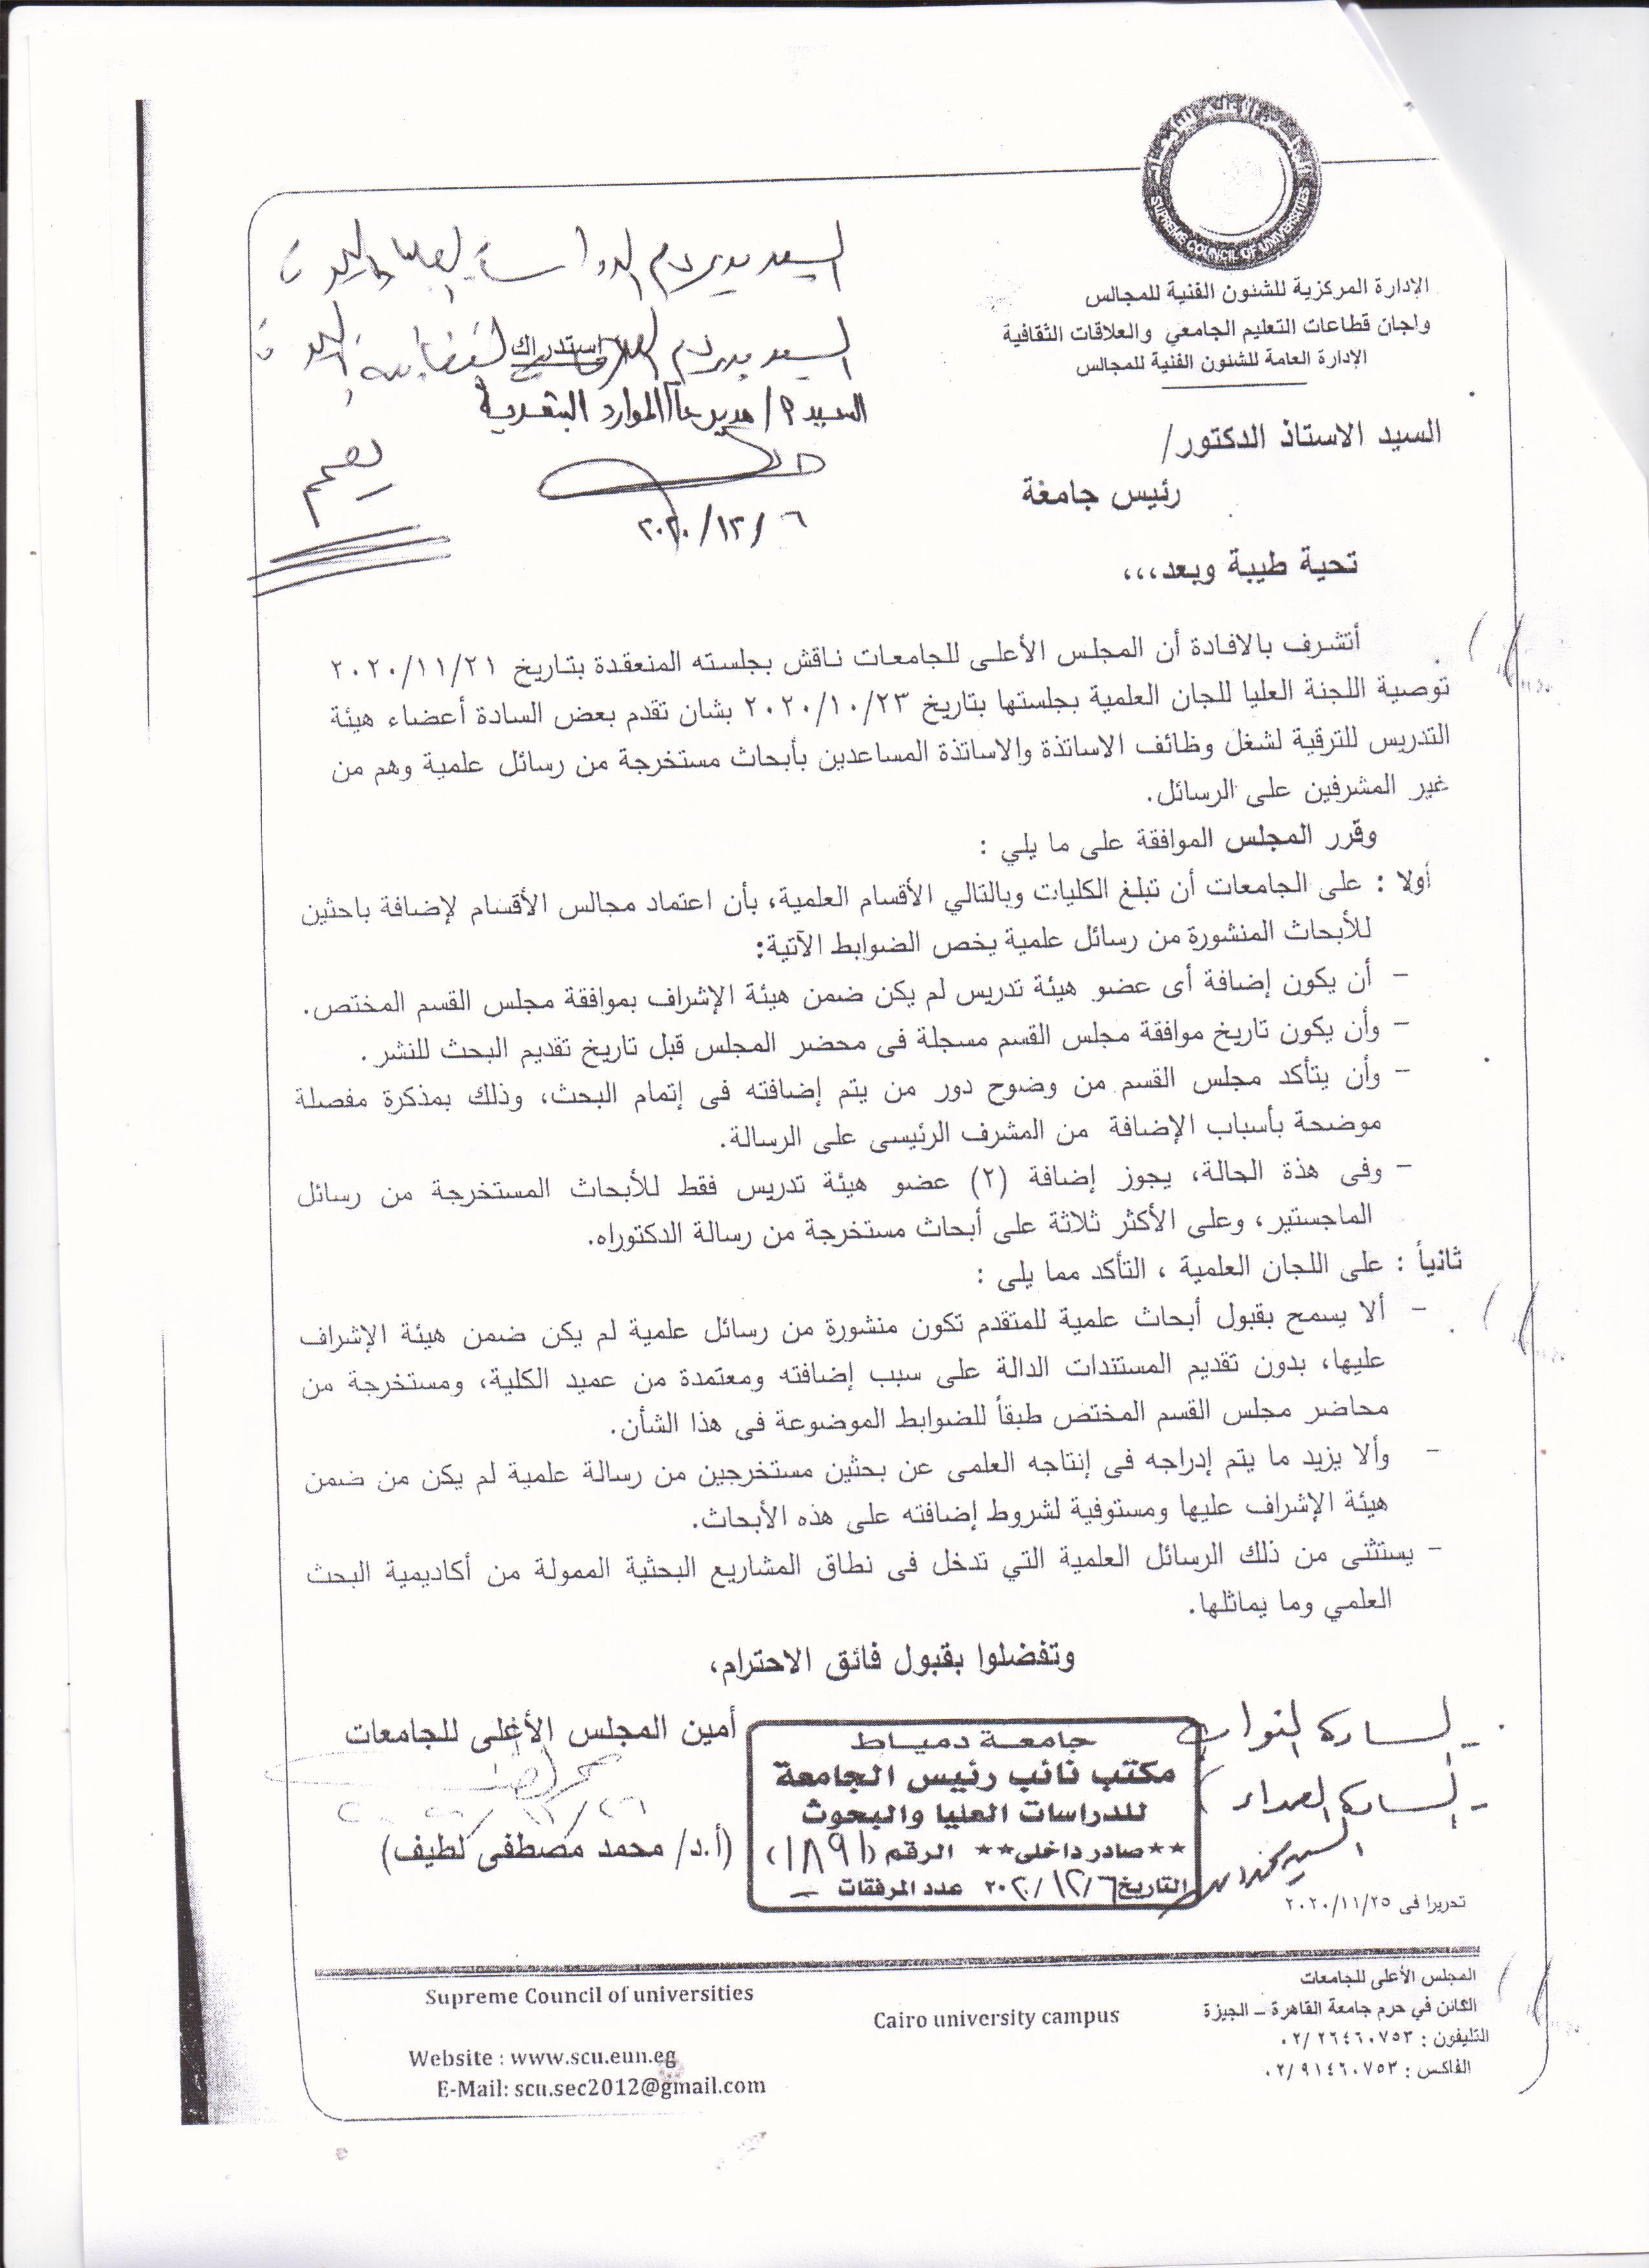 المجلس الأعلى للجامعات
SUPREME COUNCIL OF UNIVERSITIES
الإدارة المركزية للشئون الفنية للمجالس
ولجان قطاعات التعليم الجامعي والعلاقات الثقافية
الإدارة العامة للشئون الفنية للمجالس
السيد مدير عام الدراسات العليا والبحوث
السيد مدير عام
استدراك
السيد م/ مدير عام الموارد البشرية
نعمم
٢٠٢٠/١٢/٦
السيد الاستاذ الدكتور/
رئيس جامعة
تحية طيبة وبعد،،،
أتشرف بالافادة أن المجلس الأعلى للجامعات ناقش بجلسته المنعقدة بتاريخ ٢٠٢٠/١١/٢١
توصية اللجنة العليا للجان العلمية بجلستها بتاريخ ٢٠٢٠/١٠/٢٣ بشان تقدم بعض السادة أعضاء هيئة
التدريس للترقية لشغل وظائف الاساتذة والاساتذة المساعدين بأبحاث مستخرجة من رسائل علمية وهم من
غير المشرفين على الرسائل.
وقرر المجلس الموافقة على ما يلي :
أولا : على الجامعات أن تبلغ الكليات وبالتالي الأقسام العلمية، بأن اعتماد مجالس الأقسام لإضافة باحثين
للأبحاث المنشورة من رسائل علمية يخص الضوابط الآتية:
- أن يكون إضافة أى عضو هيئة تدريس لم يكن ضمن هيئة الإشراف بموافقة مجلس القسم المختص.
- وأن يكون تاريخ موافقة مجلس القسم مسجلة فى محضر المجلس قبل تاريخ تقديم البحث للنشر .
- وأن يتأكد مجلس القسم من وضوح دور من يتم إضافته فى إتمام البحث، وذلك بمذكرة مفصلة
موضحة بأسباب الإضافة من المشرف الرئيسى على الرسالة.
- وفى هذة الحالة، يجوز إضافة (٢) عضو هيئة تدريس فقط للأبحاث المستخرجة من رسائل
الماجستير، وعلى الأكثر ثلاثة على أبحاث مستخرجة من رسالة الدكتوراه.
ثانياً : على اللجان العلمية ، التأكد مما يلى :
- ألا يسمح بقبول أبحاث علمية للمتقدم تكون منشورة من رسائل علمية لم يكن ضمن هيئة الإشراف
عليها، بدون تقديم المستندات الدالة على سبب إضافته ومعتمدة من عميد الكلية، ومستخرجة من
محاضر مجلس القسم المختص طبقاً للضوابط الموضوعة فى هذا الشأن.
- وألا يزيد ما يتم إدراجه فى إنتاجه العلمى عن بحثين مستخرجين من رسالة علمية لم يكن من ضمن
هيئة الإشراف عليها ومستوفية لشروط إضافته على هذه الأبحاث.
- يستثنى من ذلك الرسائل العلمية التي تدخل فى نطاق المشاريع البحثية الممولة من أكاديمية البحث
العلمي وما يماثلها.
وتفضلوا بقبول فائق الاحترام،
- السادة النواب
- السادة العمداء
أمين المجلس الأعلى للجامعات
(أ.د/ محمد مصطفى لطيف)
جامعة دمياط
مكتب نائب رئيس الجامعة
للدراسات العليا والبحوث
**صادر داخلى** الرقم (١٨٩١)
التاريخ ٢٠٢٠/١٢/٦ عدد المرفقات –
تحريرا فى ٢٠٢٠/١١/٢٥
المجلس الأعلى للجامعات
الكائن في حرم جامعة القاهرة – الجيزة
التليفون : ٠٢/٢٦٤٦٠٧٥٣
الفاكس : ٠٢/٩١٤٦٠٧٥٣
Supreme Council of universities
Cairo university campus
Website : www.scu.eun.eg
E-Mail: scu.sec2012@gmail.com